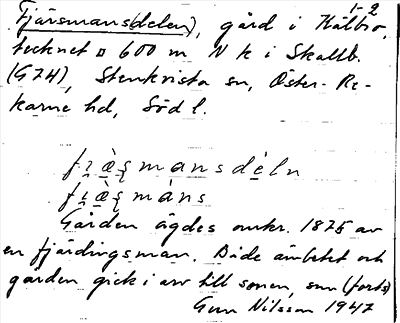 1-2
Fjärsmansdelen), gård i Kälbro,
tecknet ¤ 600 m N k i Skallb.
(G74), Stenkvista sn, Öster-Re-
karne hd, Södl.
fi̯æ̀ʂmansdèln
fi̯æ̀ʂmàns
Gården ägdes omkr. 1875 av
en fjärdingsman. Både ämbetet och
gården gick i arv till sonen, som (forts)
Gun Nilsson 1947